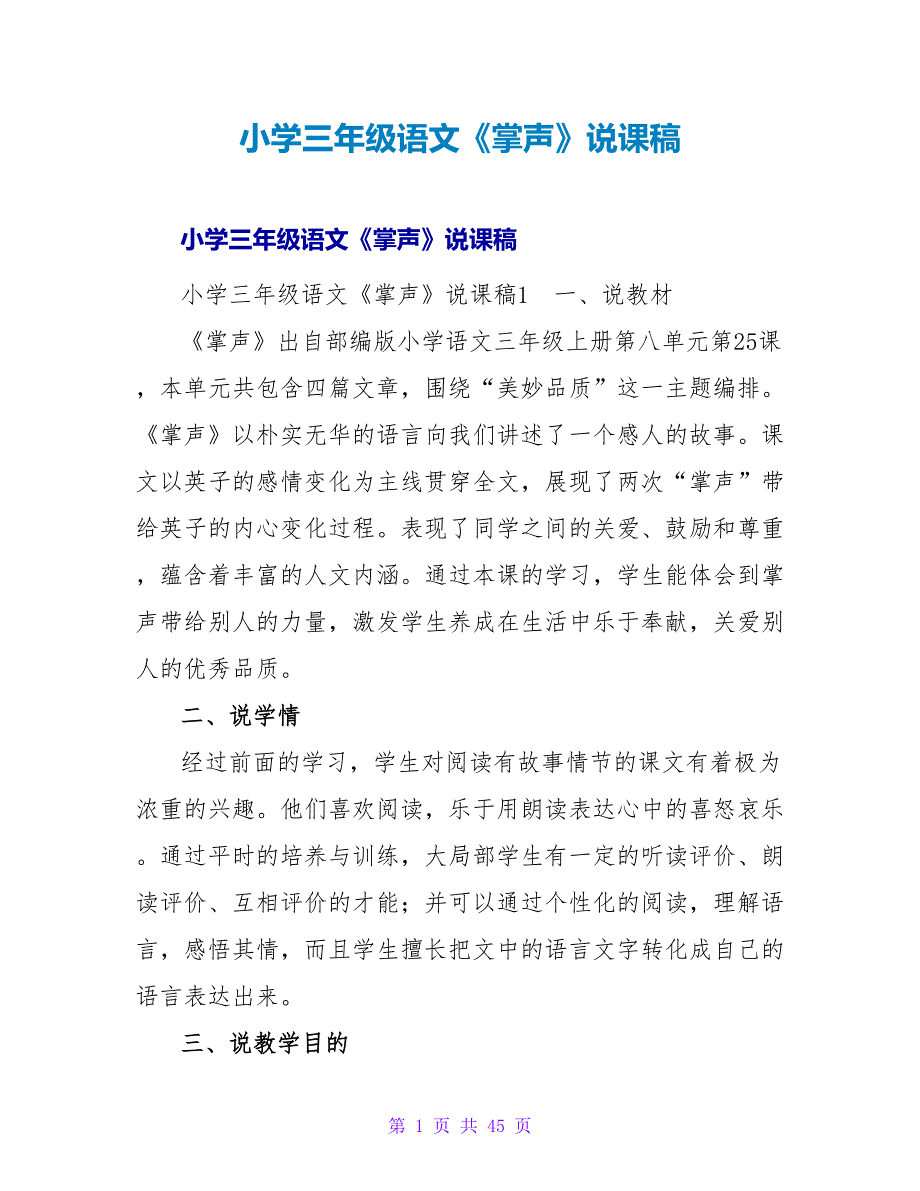 小学三年级语文《掌声》说课稿
小学三年级语文《掌声》说课稿
小学三年级语文《掌声》说课稿1　一、说教材
《掌声》出自部编版小学语文三年级上册第八单元第25课
，本单元共包含四篇文章，围绕“美妙品质”这一主题编排。
《掌声》以朴实无华的语言向我们讲述了一个感人的故事。课
文以英子的感情变化为主线贯穿全文，展现了两次“掌声”带
给英子的内心变化过程。表现了同学之间的关爱、鼓励和尊重
，蕴含着丰富的人文内涵。通过本课的学习，学生能体会到掌
声带给别人的力量，激发学生养成在生活中乐于奉献，关爱别
人的优秀品质。
二、说学情
经过前面的学习，学生对阅读有故事情节的课文有着极为
浓重的兴趣。他们喜欢阅读，乐于用朗读表达心中的喜怒哀乐
。通过平时的培养与训练，大局部学生有一定的听读评价、朗
读评价、互相评价的才能；并可以通过个性化的阅读，理解语
言，感悟其情，而且学生擅长把文中的语言文字转化成自己的
语言表达出来。
三、说教学目的
第 1 页 共 45 页